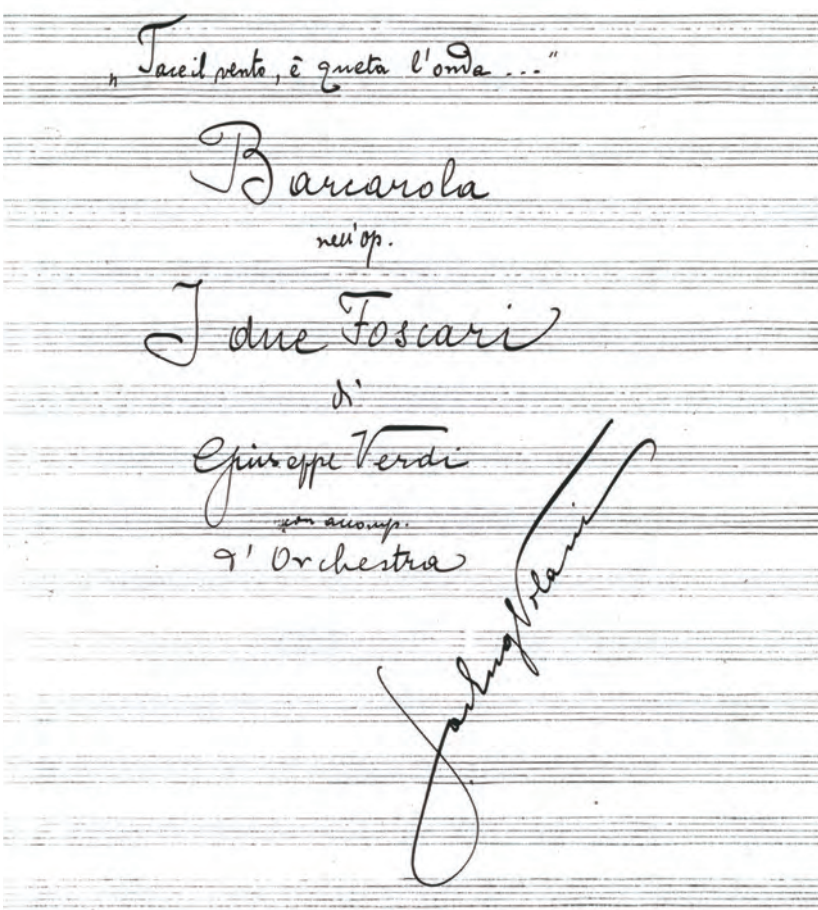 „Tace il vento, è queta l'onda ..."
Barcarola
nell'op.
I due Foscari
di
Giuseppe Verdi
con accomp.
d'Orchestra